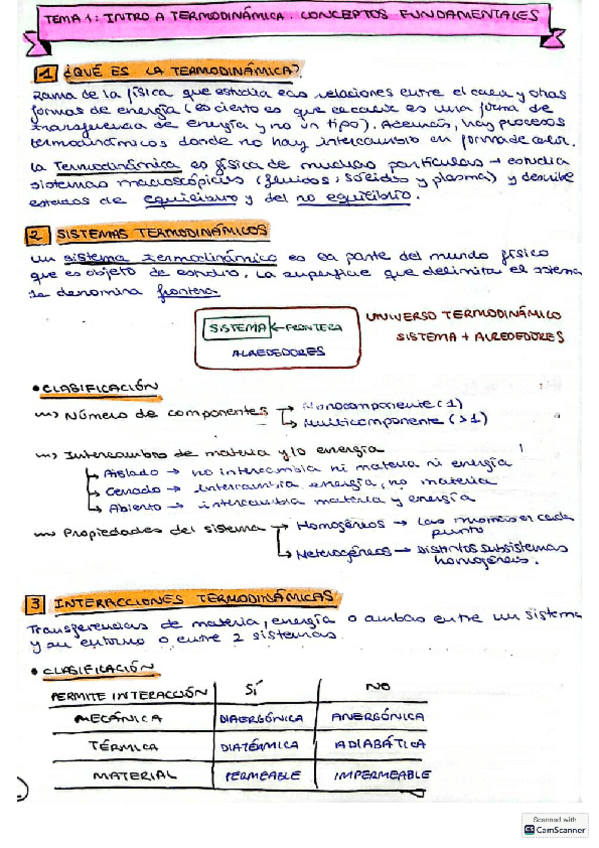 TEMA 1: INTRO A TERMODINÁMICA. CONCEPTOS FUNDAMENTALES
1 ¿QUÉ ES LA TERMODINÁMICA?
Rama de la física que estudia las relaciones entre el calor y otras
formas de energía (es cierto es que el calor es una forma de
transferencia de energía y no un tipo). Además, hay procesos
termodinámicos donde no hay intercambio en forma de calor.
La Termodinámica es física de muchas partículas → estudia
sistemas macroscópicos (fluidos, sólidos y plasma) y describe
estados de equilibrio y del no equilibrio.
2 SISTEMAS TERMODINÁMICOS
Un sistema termodinámico es la parte del mundo físico
que es objeto de estudio. La superficie que delimita el sistema
se denomina frontera
SISTEMA ← FRONTERA
ALREDEDORES
UNIVERSO TERMODINÁMICO
SISTEMA + ALREDEDORES
• CLASIFICACIÓN
Número de componentes → Monocomponente (1)
→ Multicomponente (>1)
Intercambio de materia y/o energía
→ Aislado → no intercambia ni materia ni energía
→ Cerrado → intercambia energía, no materia
→ Abierto → intercambia materia y energía
Propiedades del sistema → Homogéneos → Las mismas en cada
punto
→ Heterogéneos → Distintos subsistemas
homogéneos.
3 INTERACCIONES TERMODINÁMICAS
Transferencias de materia, energía o ambas entre un sistema
y su entorno o entre 2 sistemas.
• CLASIFICACIÓN
PERMITE INTERACCIÓN SÍ NO
MECÁNICA DIAERGÓNICA ANERGÓNICA
TÉRMICA DIATÉRMICA ADIABÁTICA
MATERIAL PERMEABLE IMPERMEABLE
Scanned with
CS CamScanner